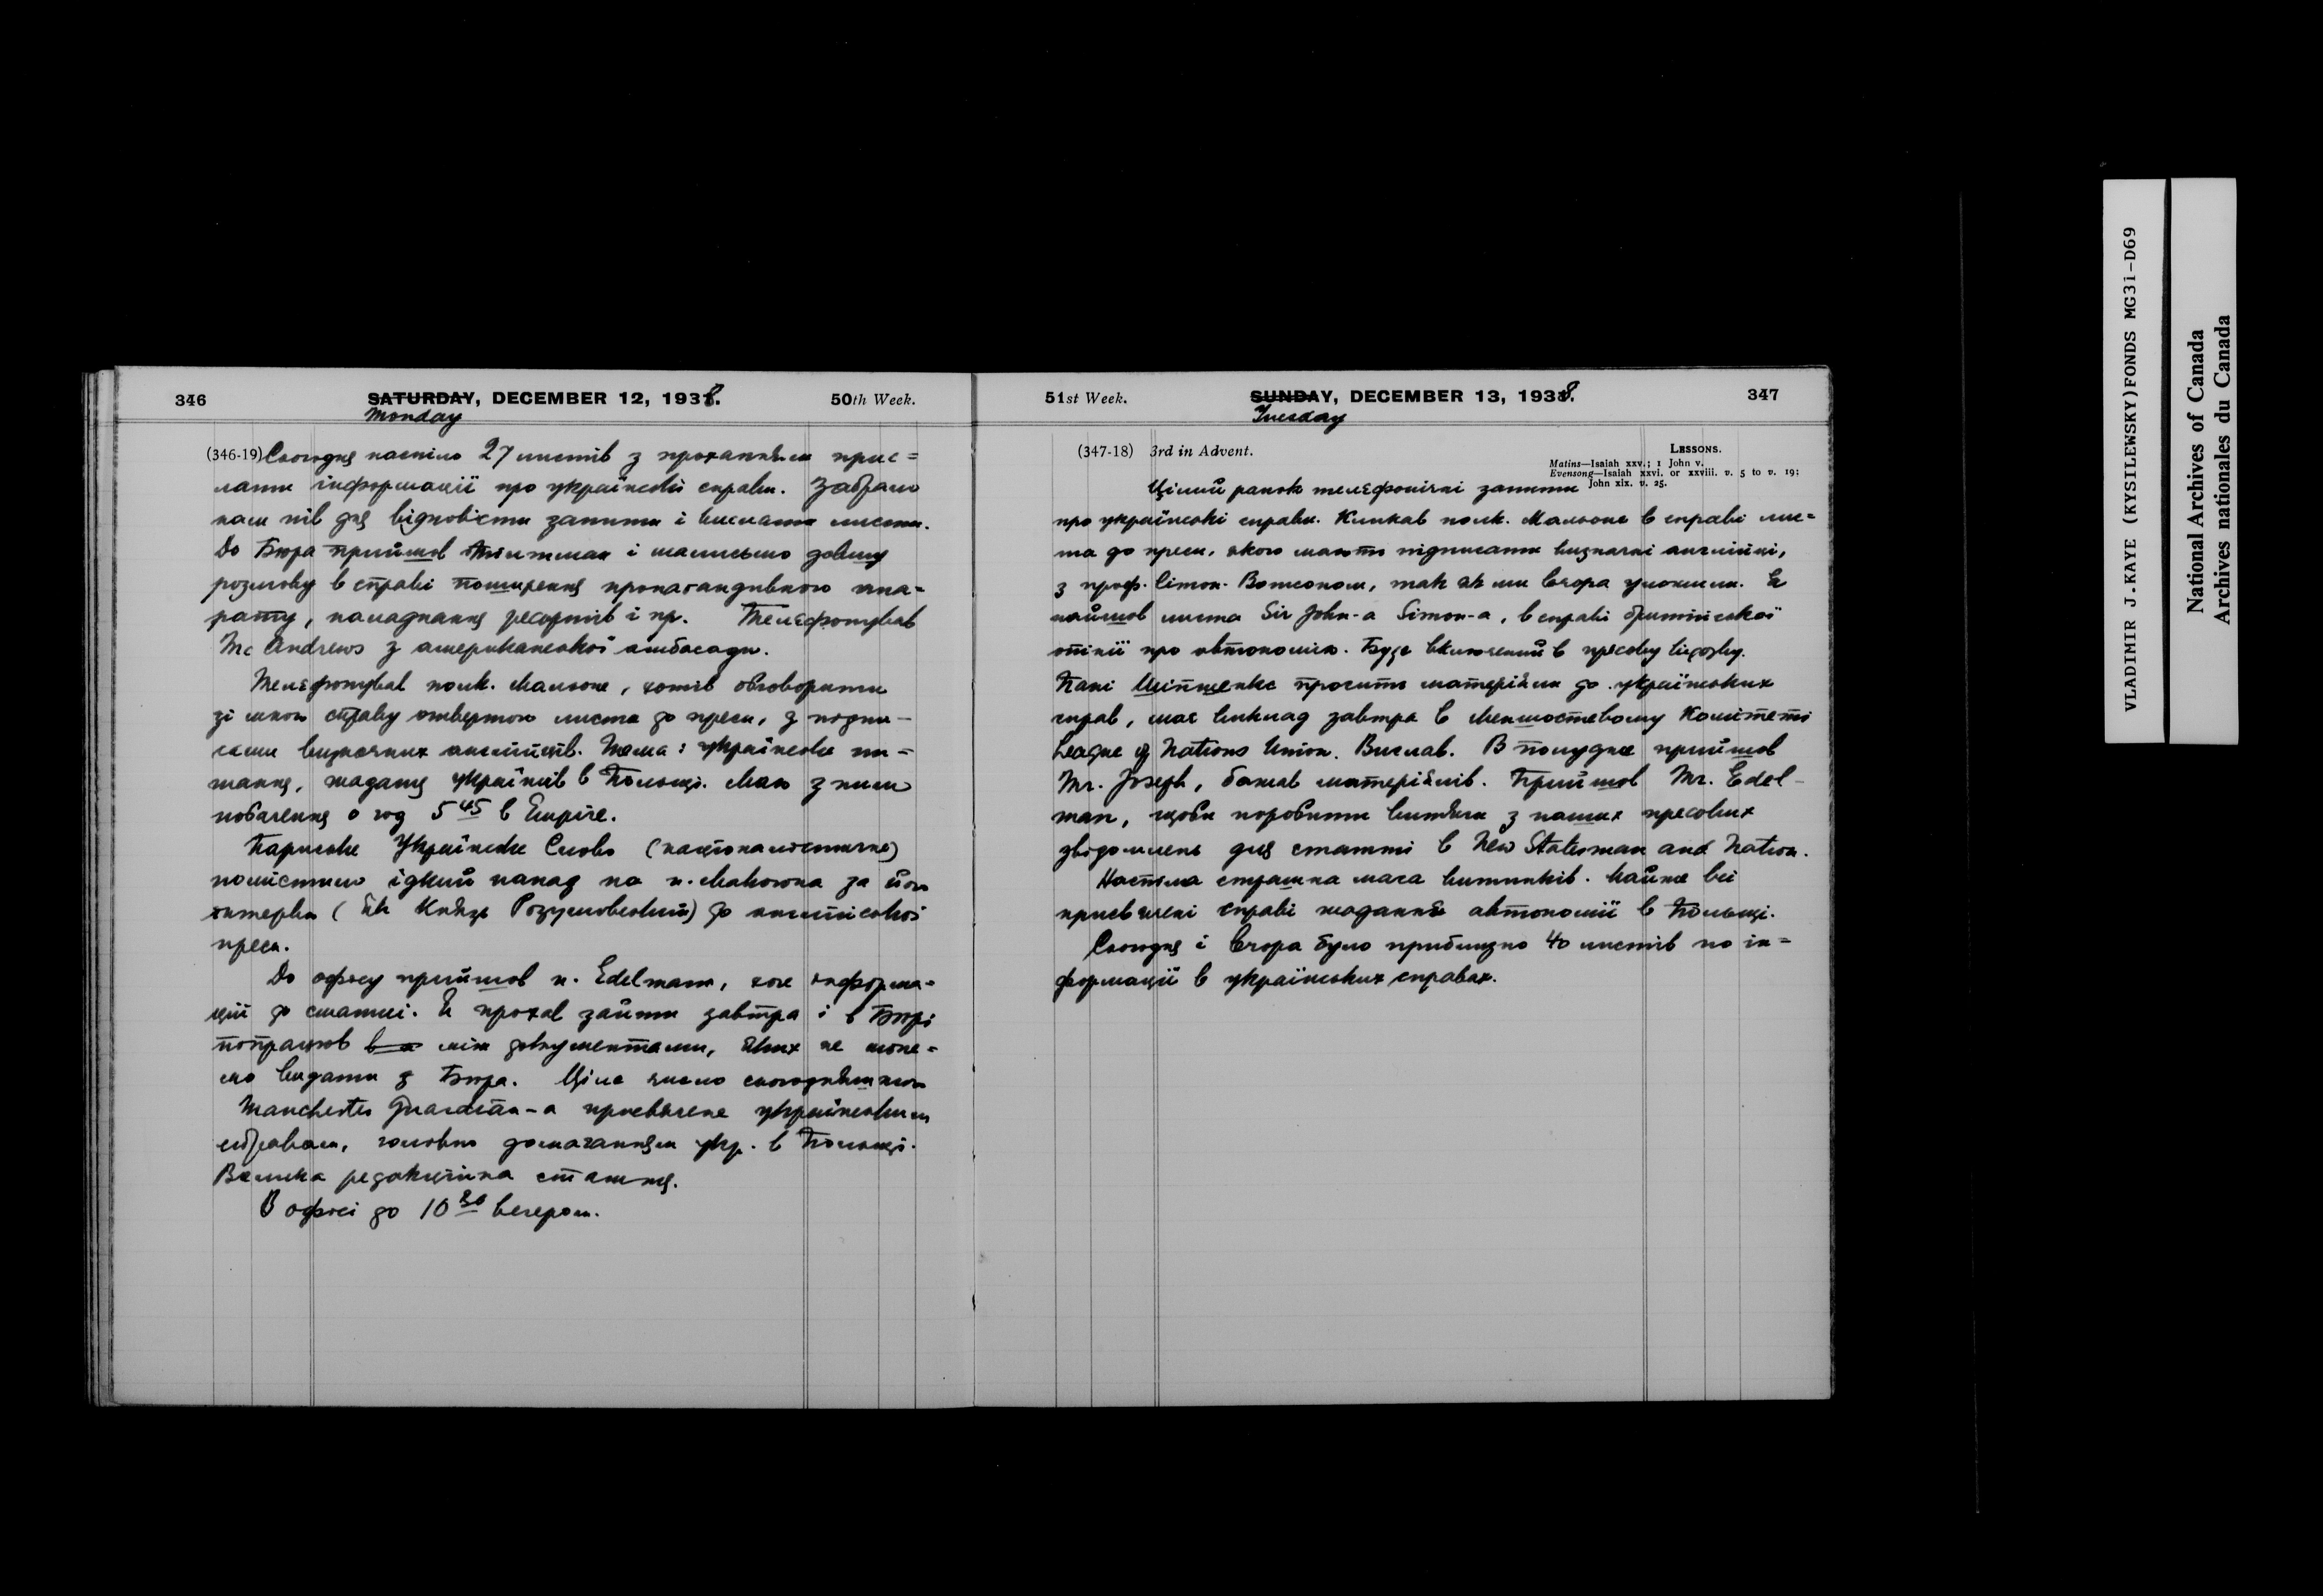 346 SATURDAY, DECEMBER 12, 1938. 50th Week.
Monday
(346-19) Сьогодня наспіло 27 листів з проханням прис=
лати інформації про українські справи. Забрало
нам пів дня відповісти запити і вислати листи.
До Бюра прийшов і мали довшу
розмову в справі поширення пропагандивного апа-
рату, наладнання ресортів і пр. Телєфонував
McAndrews з американської амбасади.
Телєфонував полк. Мальоне, хотів обговорити
зі мною справу отвертого листа до преси, з подпи-
сами визначних англійців. Тема: українське пи-
тання, жадання українців в Польщі. Маю з ним
побачення о год 5 45 в Empire.
Париське Українське Слово (націоналістичне)
помістило їдкий напад на п. Макогона за його
інтервю (як Князь Розумовський) до англійської
преси.
До офісу прийшов п. Edelmann, хоче інформа-
цій до статті. Я прохав зайти завтра і в Бюрі
попрацюв між документами, яких не може-
мо видати з Бюра. Ціле число сьогоднішного
Manchester Guardian-а присвячене українським
справам, головно домаганням укр. в Польщі.
Велика редакційна стаття.
В офісі до 10 30 вечером.
51st Week. SUNDAY, DECEMBER 13, 1938. 347
Tuesday
(347-18) 3rd in Advent. LESSONS.
Matins—Isaiah xxv.; 1 John v.
Evensong—Isaiah xxvi. or xxviii. v. 5 to v. 19;
John xix. v. 25.
Цілий ранок телєфонічні запити
про українські справи. Кликав полк. Мальоне в справі лис=
та до преси, якого мають підписати визначні англійці,
з проф. Сітон-Ватсоном, так як ми вчора уложили. Я
найшов листа Sir John-а Simon-а, в справі бритійської
опінії про автономію. Буде включений в пресову відозву.
Пані Шіпшенкс просить матеріяли до українських
справ, має виклад завтра в Меншостевому Комітеті
League of Nations Union. Вислав. В полудне прийшов
Mr. Joseph, бажав матеріялів. Прийшов Mr. Edel-
man, щоби поробити витяги з наших пресових
звідомлень для статті в New Statesman and Nation.
Наспіла страшна маса витинків. Майже всі
присвячені справі жадання автономії в Польщі.
Сьогодня і вчора було приблизно 40 листів по ін=
формації в українських справах.
VLADIMIR J.KAYE (KYSILEWSKY)FONDS MG31-D69
National Archives of Canada
Archives nationales du Canada